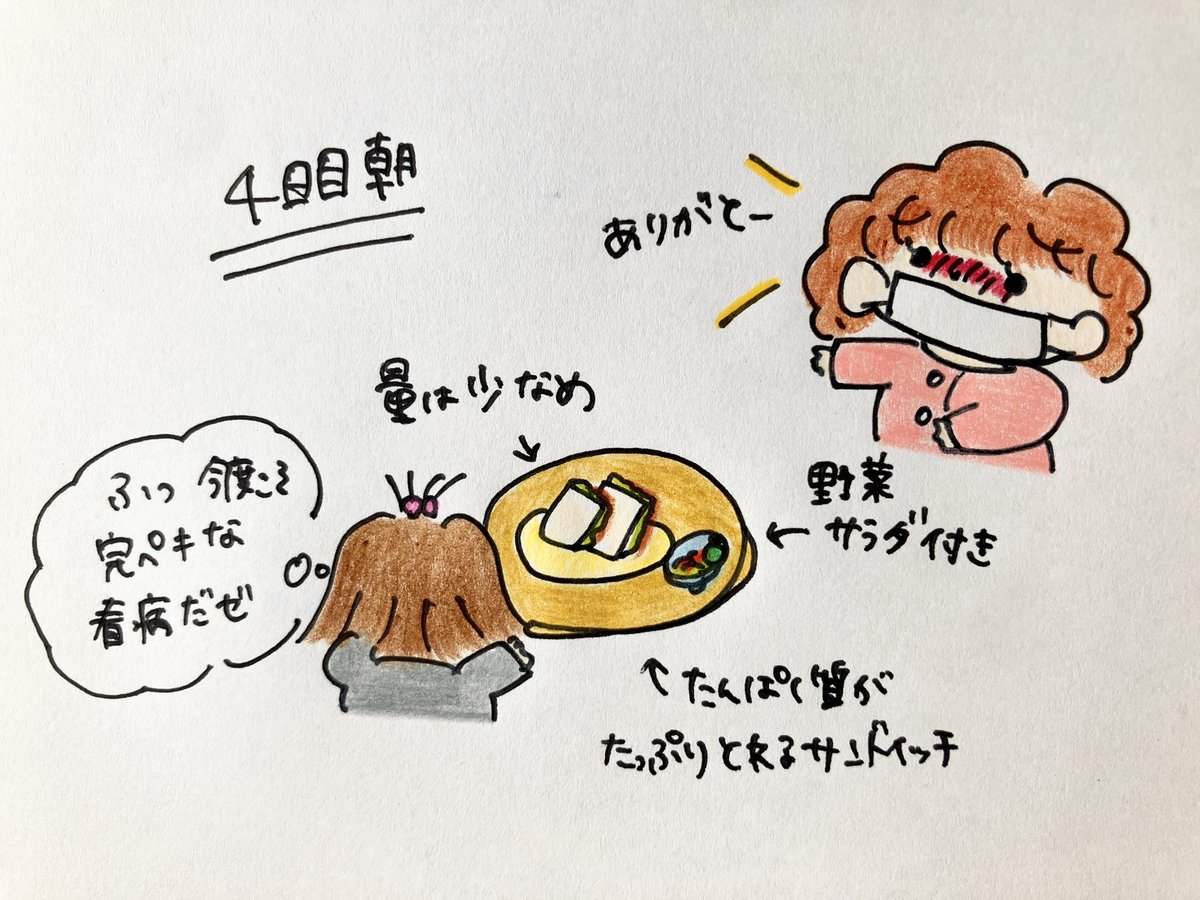 4日目朝
ありがとー
量は少なめ
ふっ 今度こそ
完ペキな
看病だぜ
野菜
サラダ付き
たんぱく質が
たっぷりとれるサンドイッチ